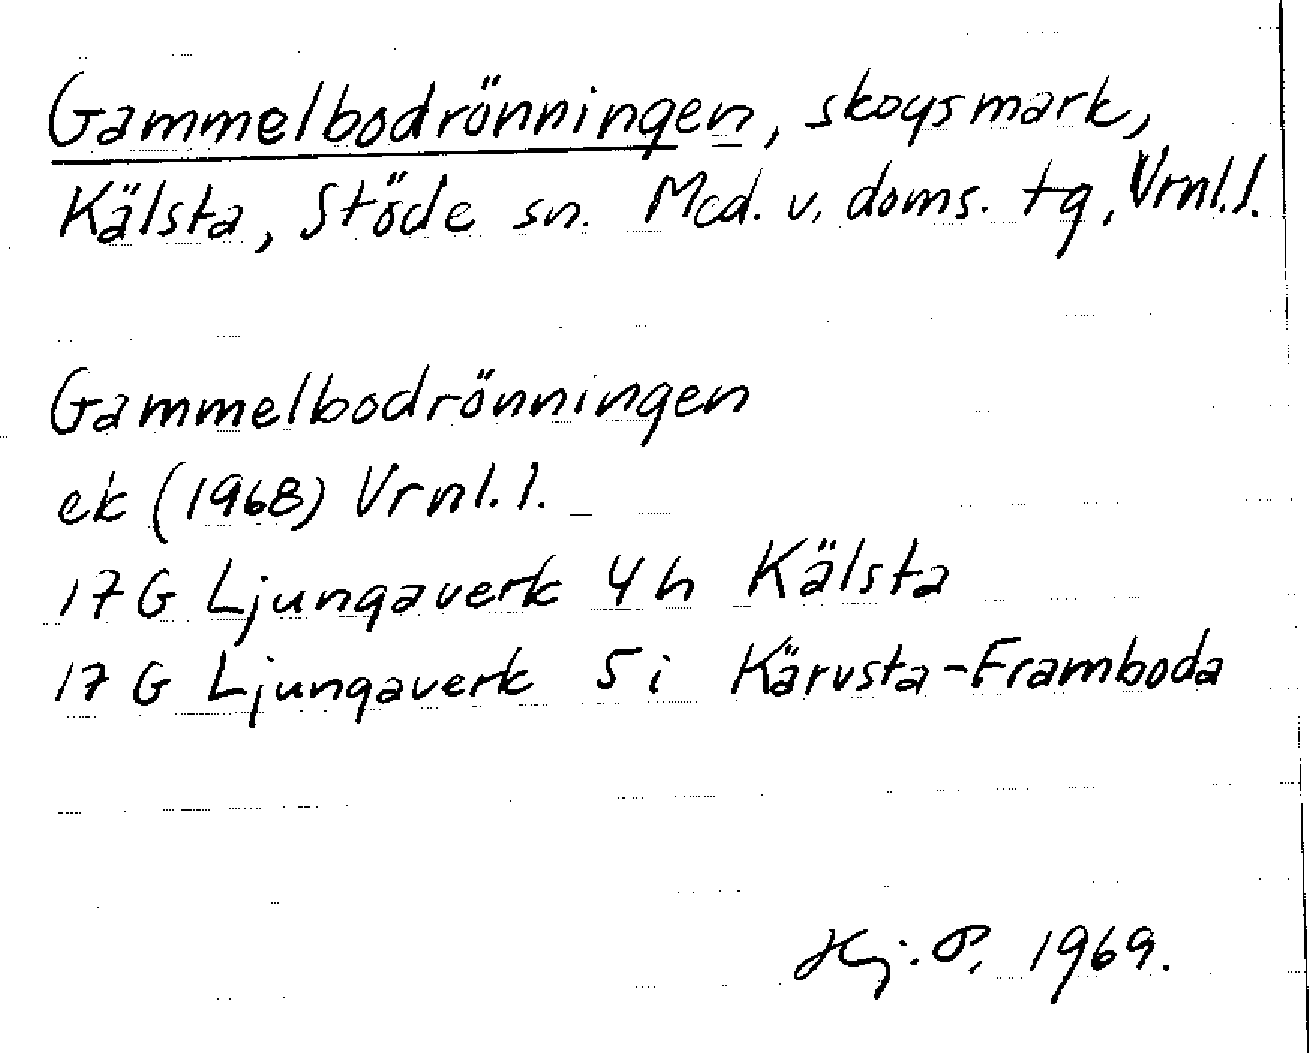 Gammelbodrönningen, skogsmark,
Kälsta, Stöde sn. Med. v. doms. tg, Vrnl.l.
Gammelbodrönningen
ek (1968) Vrnl.l.
17 G Ljungaverk 4 h Kälsta
17 G Ljungaverk 5 i Kärvsta-Framboda
Hj. P. 1969.